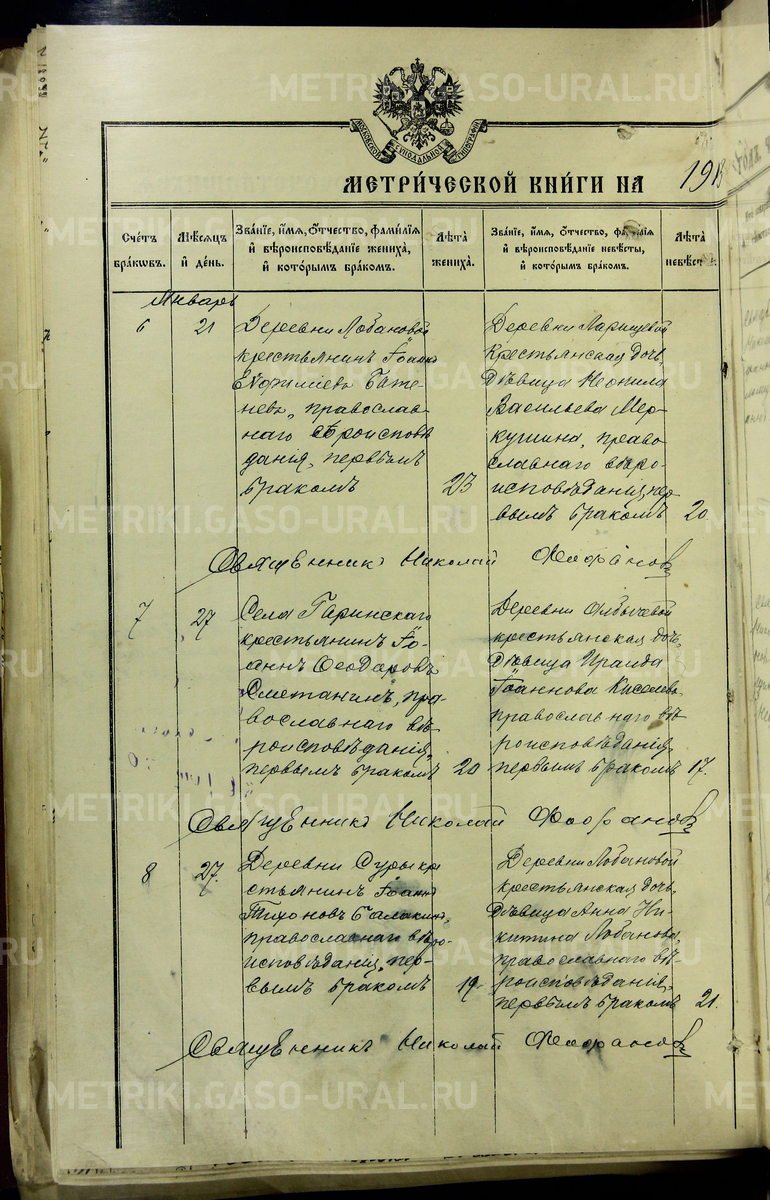 METRIKI.GASO-URAL.RU
МОСКОВСКОЙ СѴНОДАЛЬНОЙ ТИПОГРАФІИ
МЕТРИ́ЧЕСКОЙ КНИ́ГИ НА 191
Сче́тъ бра́кωвъ.
Мѣ́сяцъ и҆ де́нь.
Зва́нїе, и҆́мя, ѻ҆́тчество, фами́лїя
и҆ вѣроисповѣ́данїе жениха̀,
и҆ кото́рымъ бра́комъ.
Лѣ́та жениха̀.
Зва́нїе, и҆́мя, ѻ҆́тчество, фами́лїя
и҆ вѣроисповѣ́данїе невѣ́сты,
и҆ кото́рымъ бра́комъ.
Лѣ́та невѣ́ст
Январь
6
21
Деревни Лобановой
крестьянинъ Іоаннъ
Евфиміевъ Бате-
невъ, православ-
наго вѣроисповѣ
данія, первымъ
бракомъ
23
Деревни Ларищевой
крестьянская дочь,
дѣвица Неонила
Васильева Мер-
кушина, право
славнаго вѣро-
исповѣданія, пер
вымъ бракомъ
20.
Священникъ Николай
7
27
Села Гаринскаго
крестьянинъ Іо-
аннъ Ѳеодоровъ
Сметанинъ, пра-
вославнаго вѣ
роисповѣданія,
первымъ бракомъ
20
Деревни
крестьянская дочь,
дѣвица Ираида
Іоаннова Киселева
православнаго вѣ
роисповѣданія,
первымъ бракомъ
17.
Священникъ Николай
8
27.
Деревни кре
стьянинъ Іоаннъ
Тихоновъ Балакинъ,
православнаго вѣро-
исповѣданія, пер-
вымъ бракомъ
19.
Деревни Лобановой
крестьянская дочь,
дѣвица Анна Ни-
китина Лобанова,
православнаго вѣ-
роисповѣданія,
первымъ бракомъ
21.
Священникъ Николай